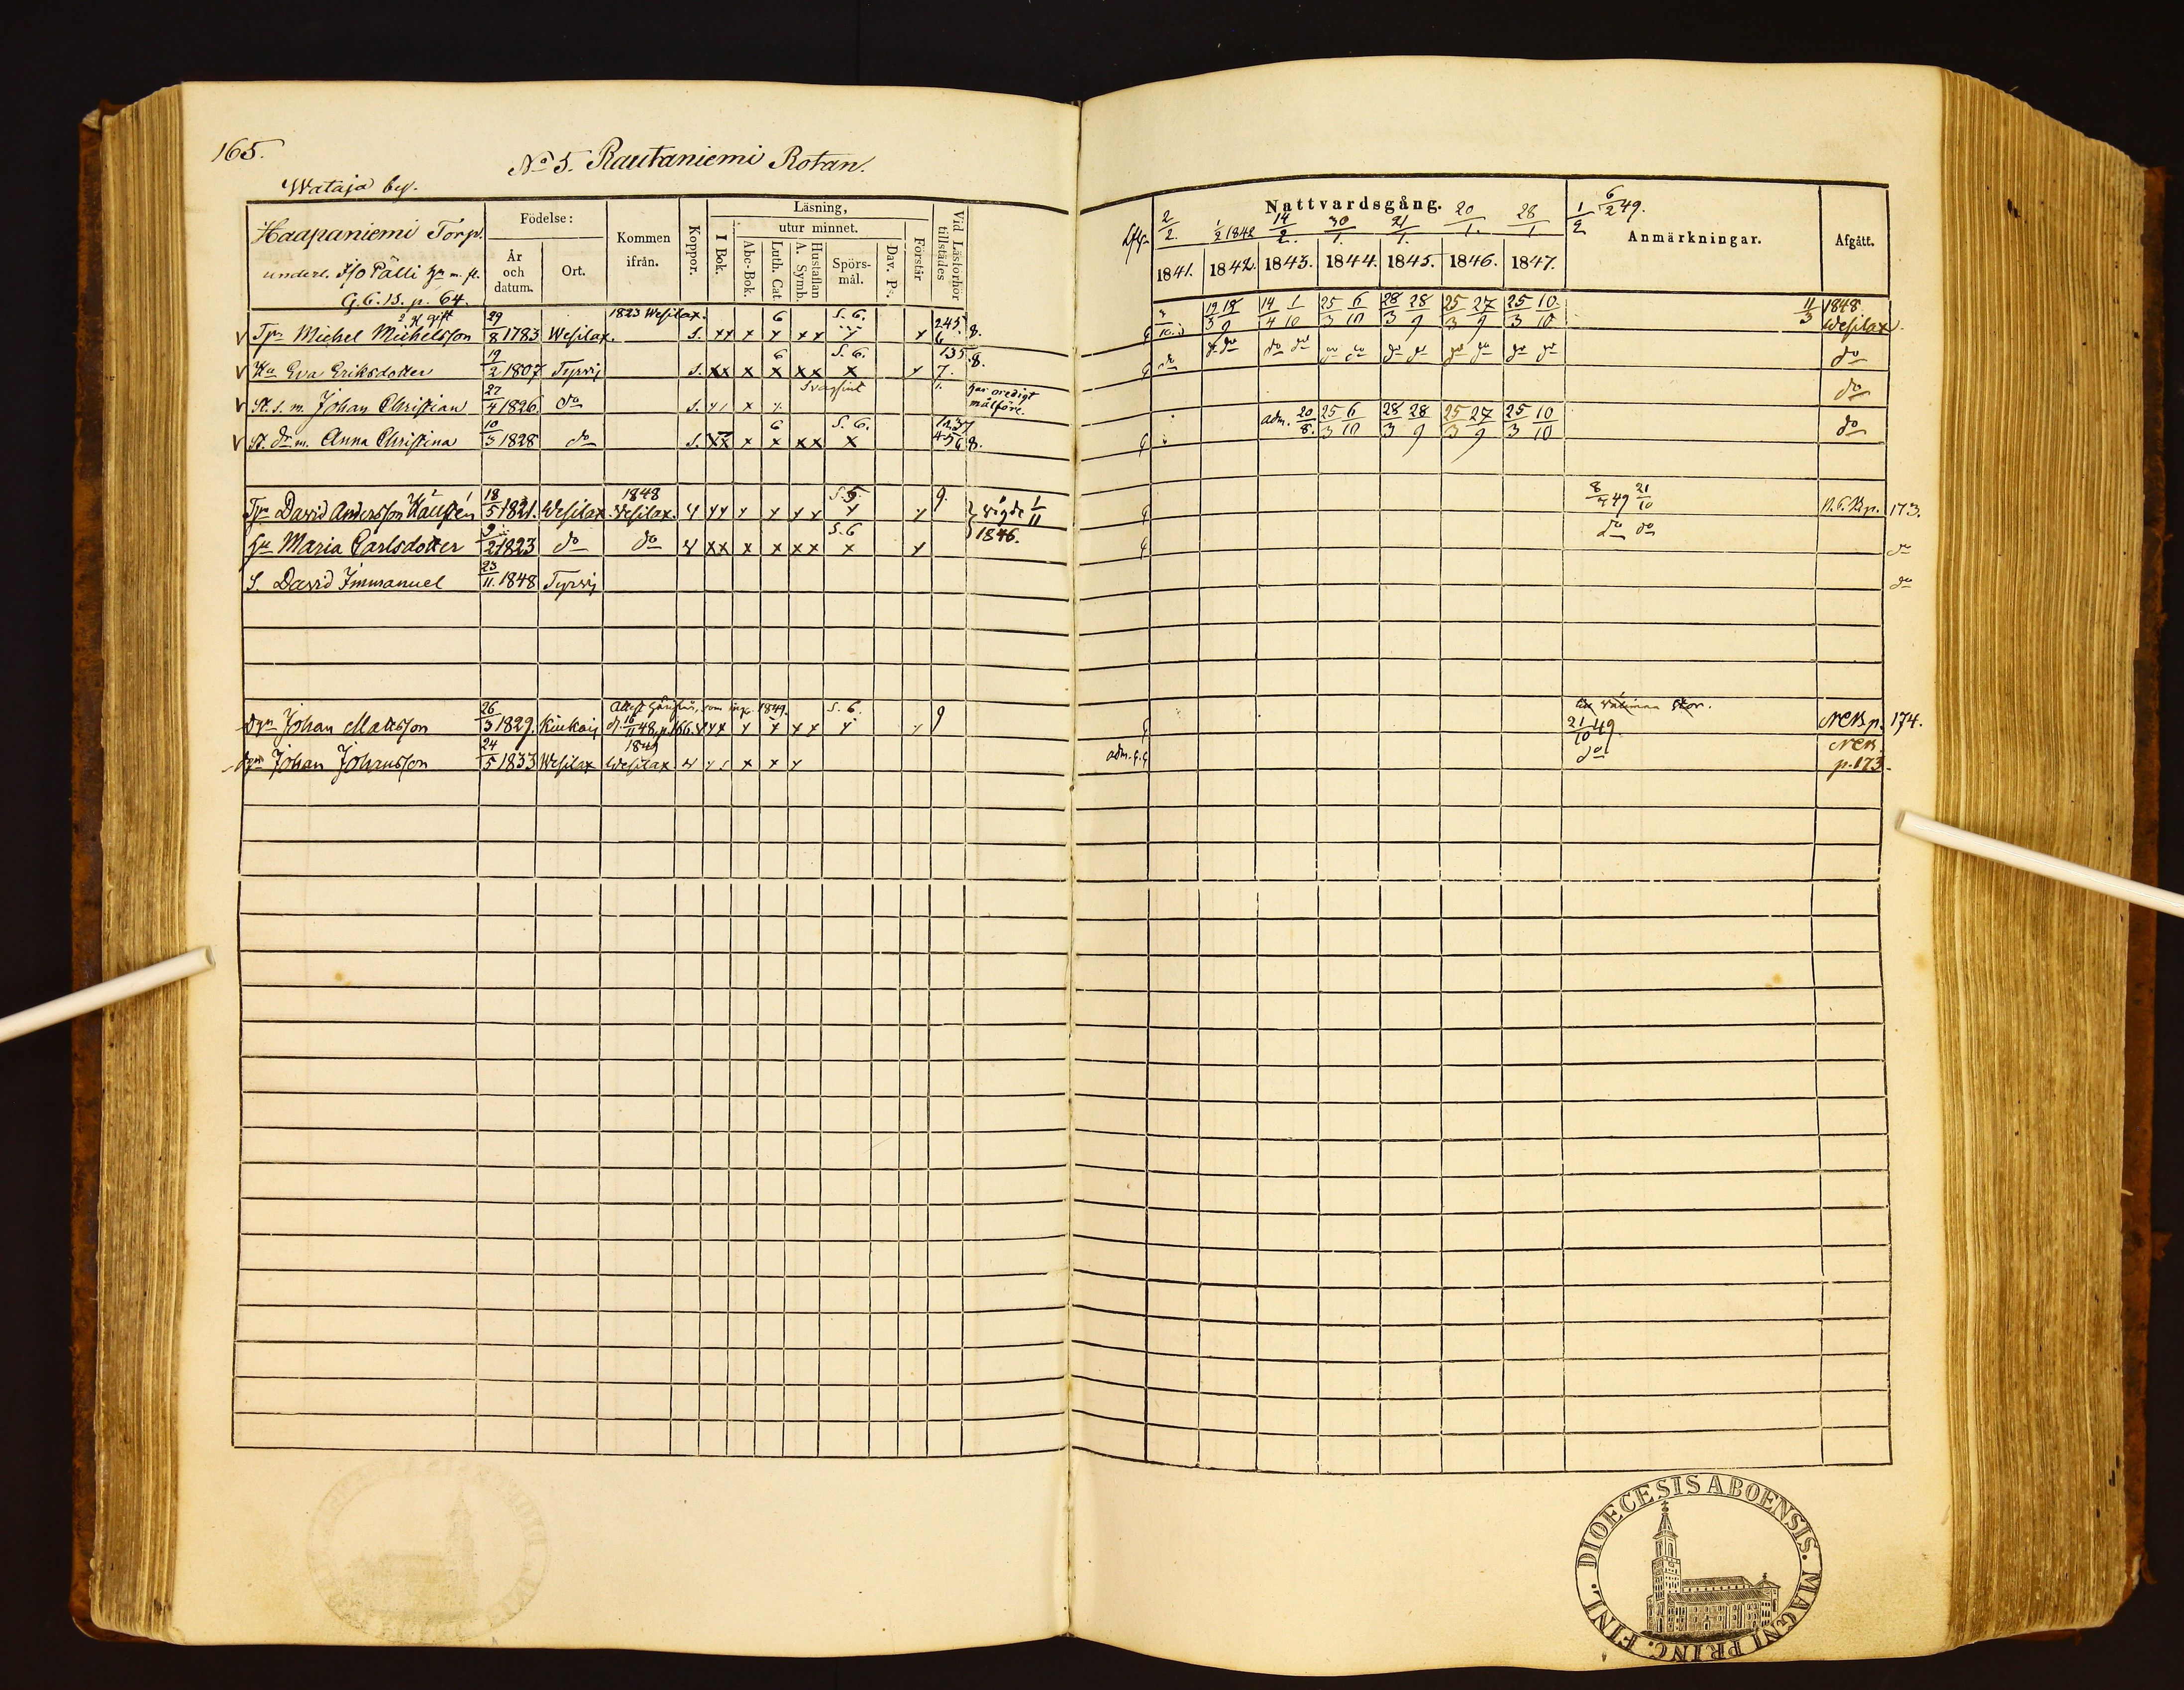 165.
No 5. Rautaniemi Rotan.
Wataja by.
Haapaniemi Torp.
underl. Pälli
G.C.B. p. 64.
Födelse:
År och datum.
Ort.
Kommen ifrån.
Koppor.
Läsning,
I Bok.
utur minnet.
Abc-Bok.
Luth. Cat.
Hustaflan A. Symb.
Spörsmål.
Dav. Ps.
Förstår
Vid Läsförhör tillstädes
2 g gift
Michel Michelsson 29/8 1783 Wesilax. 1823 Wesilax. S. xx x 6 x xx S. 6. x x 245. 6 8.
Eva Eriksdotter 19/2 1807 Tyrvis S. xx x 6 x xx S. 6. x x 135. 7. 8.
St. s. m. Johan Christian 27/4 1826 do S. x Svagsint 1. har oredigt målföre.
St. dr m. Anna Christina 10/3 1828 do S. xx x 6 x xx S. 6. x 8.
David Andersson 18/5 1821. Wesilax 1848 Wesilax. xx x x xx x x 9. vigde 1/11 1846.
Maria Carlsdotter 9/2 1823 do do xx x x xx S. 6 x x
S. David Immanuel 23/11. 1848 Tyrvis
Johan Mattsson 26/3 1829. Kiukais 16/11 48, p. 166. 1849. xx x x xx S. 6. x x 9
Johan Johansson 24/5 1833 Wesilax 1849 Wesilax x x x
Nattvardsgång.
2/2. 1/2 1842 14/2. 30/1. 21/1. 20/1. 28/1 1/2 6/2 49.
1841. 1842. 1843. 1844. 1845. 1846. 1847.
Anmärkningar.
Afgått.
3/10. 19/3 18/9 14/4 1/10 25/3 6/10 28/3 28/9 25/3 27/9 25/3 10/10 11/3 1848. Wesilax.
do do do do do do do do do do do do do do
do
adm. 20/8. 25/3 6/10 28/3 28/9 25/3 27/9 25/3 10/10 do
8/7 49 21/10 173.
do do do
do
21/10 49. p. 174.
adm. do p. 173.
FINL. DIOECESIS ABOENSIS. MAGNI PRINC.